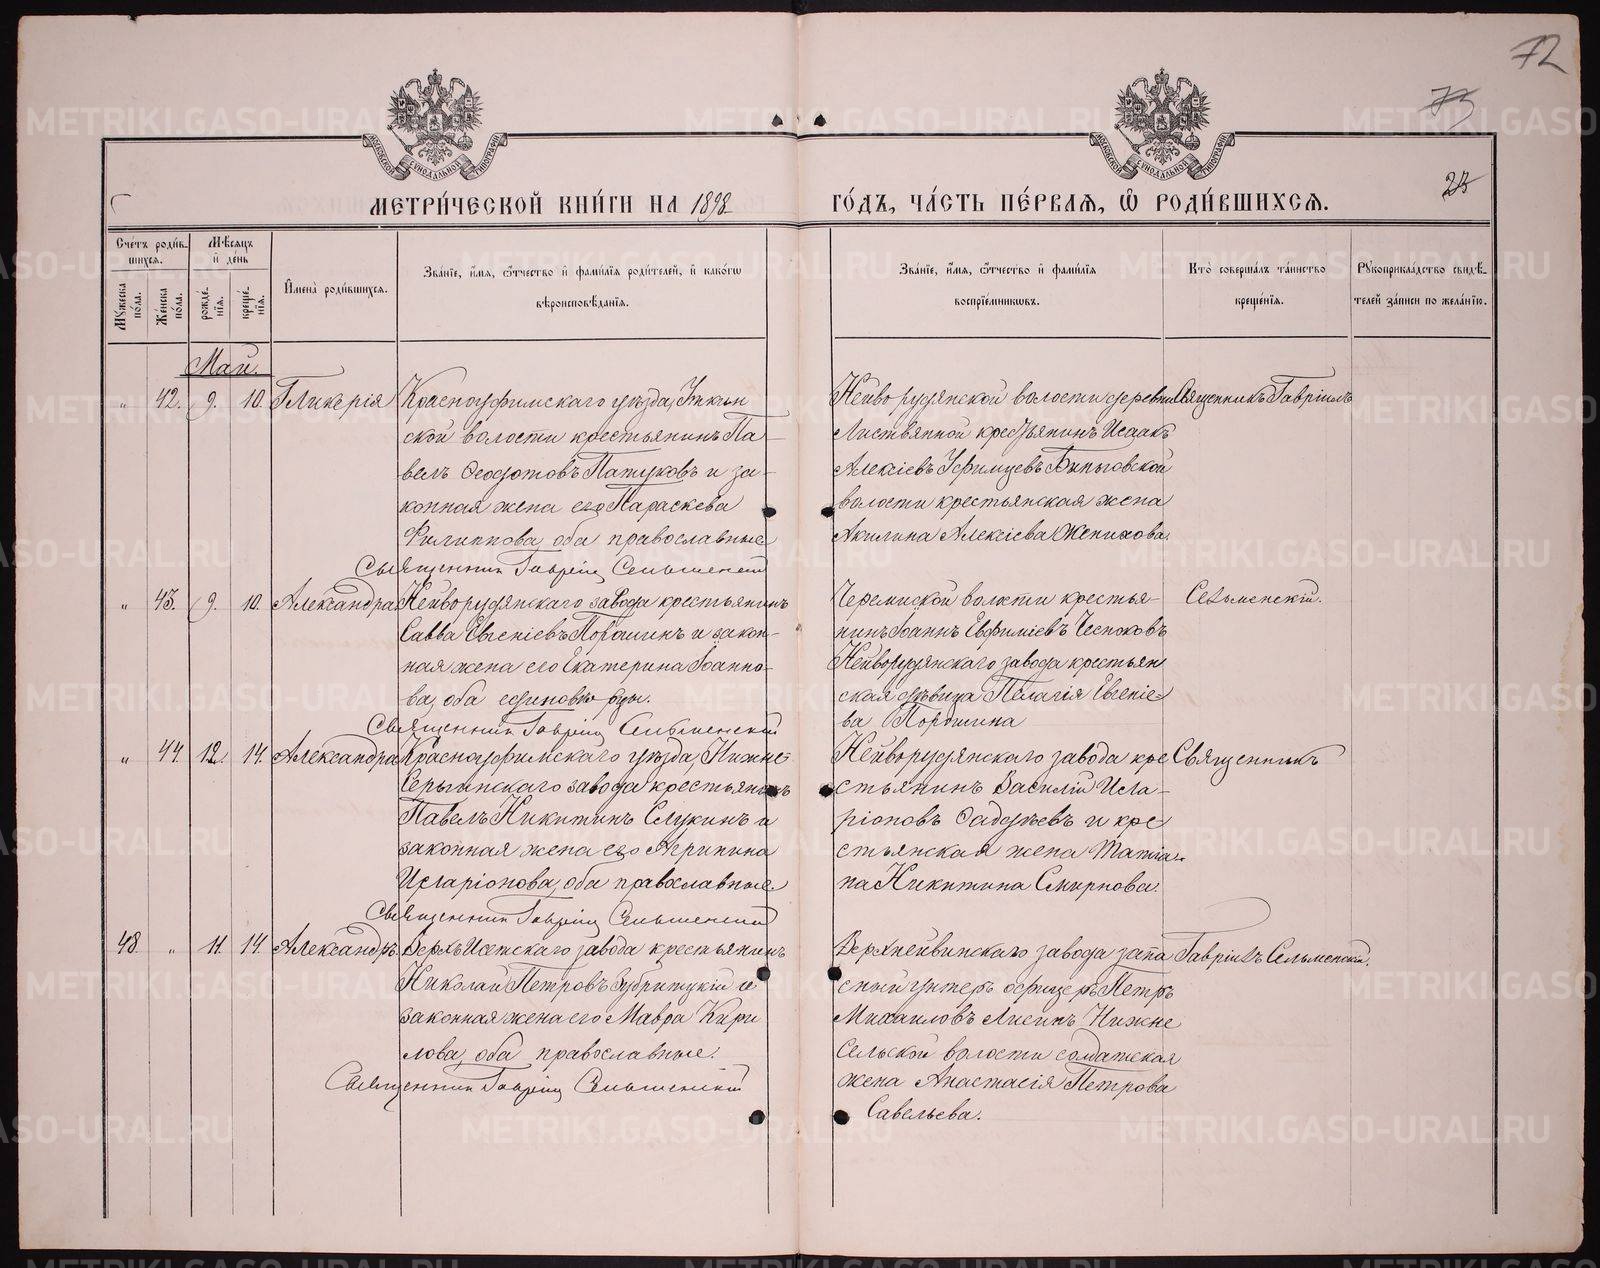 72
73
23
МЕТРИ́ЧЕСКОЙ КНИ́ГИ НА 1898 ГО́ДЪ, ЧА́СТЬ ПЕ́РВАѦ, Ѡ҆ РОДИ́ВШИХСѦ.
Сче́тъ роди́в-
шихсѧ.
Мꙋ́жеска по́ла.
Же́нска по́ла.
Мѣ́сѧцъ и҆ де́нь
рожде́-
нїѧ.
креще́-
нїѧ.
И҆мена̀ роди́вшихсѧ.
Зва́нїе, и҆́мѧ, ѻ҆́тчество и҆ фамі́лїѧ роди́телей, и҆ како́гѡ
вѣроисповѣ́данїѧ.
Зва́нїе, и҆́мѧ, ѻ҆́тчество и҆ фамі́лїѧ
воспрїе́мникѡвъ.
Кто̀ соверша́лъ та́инство
креще́нїѧ.
Рꙋкоприкла́дство свидѣ́-
телей за́писи по жела́нїю.
Май.
" 42. 9. 10. Гликерія
Красноуфимскаго уѣзда, Уткин
ской волости крестьянинъ Па-
велъ Ѳеодотовъ Патуковъ и за-
конная жена его Параскева
Филиппова, оба православные
Священник Гавріил Сельменскій
Нейво рудянской волости деревни
Листвянной крестьянинъ Исаакъ
Алексіевъ Уфимцевъ Быньговской
волости крестьянская жена
Акилина Алексіева Женихова.
Священникъ Гавріилъ
" 43. 9. 10. Александра
Нейворудянскаго завода крестьянинъ
Савва Евгеніевъ Порошинъ и закон-
ная жена его Екатерина Іоанно-
ва, оба единовѣрцы.
Священник Гавріил Сельменскій
Черемиской волости крестья-
нинъ Іоаннъ Евфиміевъ Чесноковъ
Нейворудянскаго завода крестьян
ская дѣвица Пелагія Евгеніе-
ва Порошина
Сельменскій.
" 44. 12. 14. Александра
Красноуфимскаго уѣзда, Нижне-
Сергинскаго завода крестьянинъ
Павелъ Никитинъ Слукинъ и
законная жена его Агрипина
Иларіонова, оба православные.
Священник Гавріил Сельменскій
Нейворудянскаго завода кре
стьянинъ Василій Ила-
ріоновъ Фадѣевъ и кре
стьянская жена Татіа-
на Никитина Смирнова.
Священникъ
48. " 11. 14. Александръ
Верхъ Исетскаго завода крестьянинъ
Николай Петровъ Зубрицкій и
законная жена его Мавра Кири
лова, оба православные.
Священник Гавріил Сельменскій
Верхнейвинскаго завода запа
сный унтеръ офицеръ Петръ
Михаиловъ Лисинъ Нижне
сельской волости солдатская
жена Анастасія Петрова
Савельева.
Гавріилъ Сельменскій.
METRIKI.GASO-URAL.RU